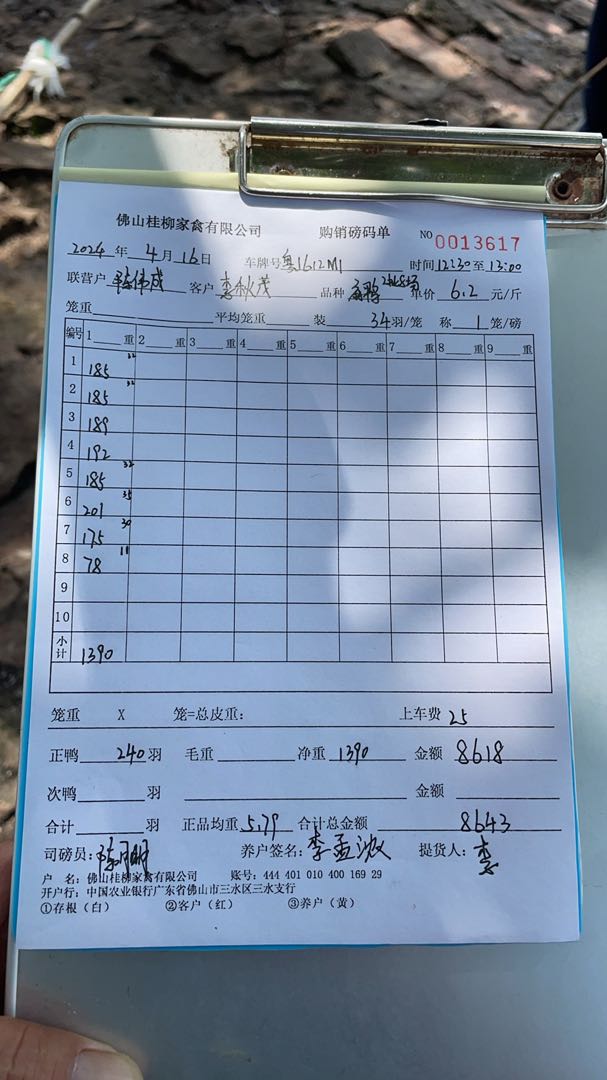 佛山桂柳家禽有限公司 购销磅码单 NO 0013617
2024 年 4 月 16 日 车牌号 粤1612M1 时间 12:30 至 13:00
联营户 客户 李秋茂 品种 单价 6.2 元/斤
笼重 平均笼重 装 34 羽/笼 称 1 笼/磅
编号 1 重 2 重 3 重 4 重 5 重 6 重 7 重 8 重 9 重
1 185 32
2 185 32
3 189
4 192
5 185 32
6 201 35
7 175 30
8 78 11
9
10
小计 1390
笼重 X 笼=总皮重: 上车费 25
正鸭 240 羽 毛重 净重 1390 金额 8618
次鸭 羽 金额
合计 羽 正品均重 5.79 合计总金额 8643
司磅员: 陈明明 养户签名: 李孟波 提货人: 李
户 名: 佛山桂柳家禽有限公司 账号: 444 401 010 400 169 29
开户行: 中国农业银行广东省佛山市三水区三水支行
①存根（白） ②客户（红） ③养户（黄）